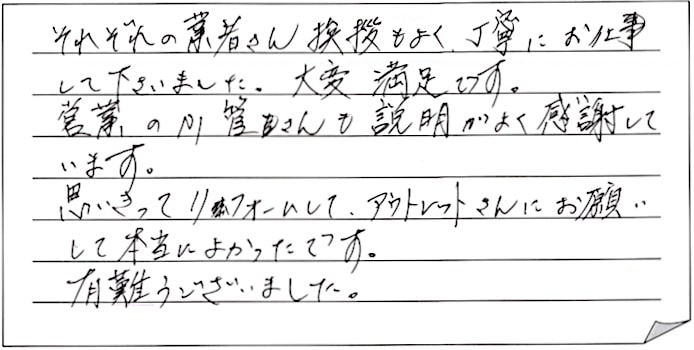 それぞれの業者さん挨拶もよく、丁寧にお仕事
して下さいました。大変満足です。
営業の小菅さんも説明がよく感謝して
います。
思いきってリフォームして、アウトレットさんにお願い
して本当によかったです。
有難うございました。